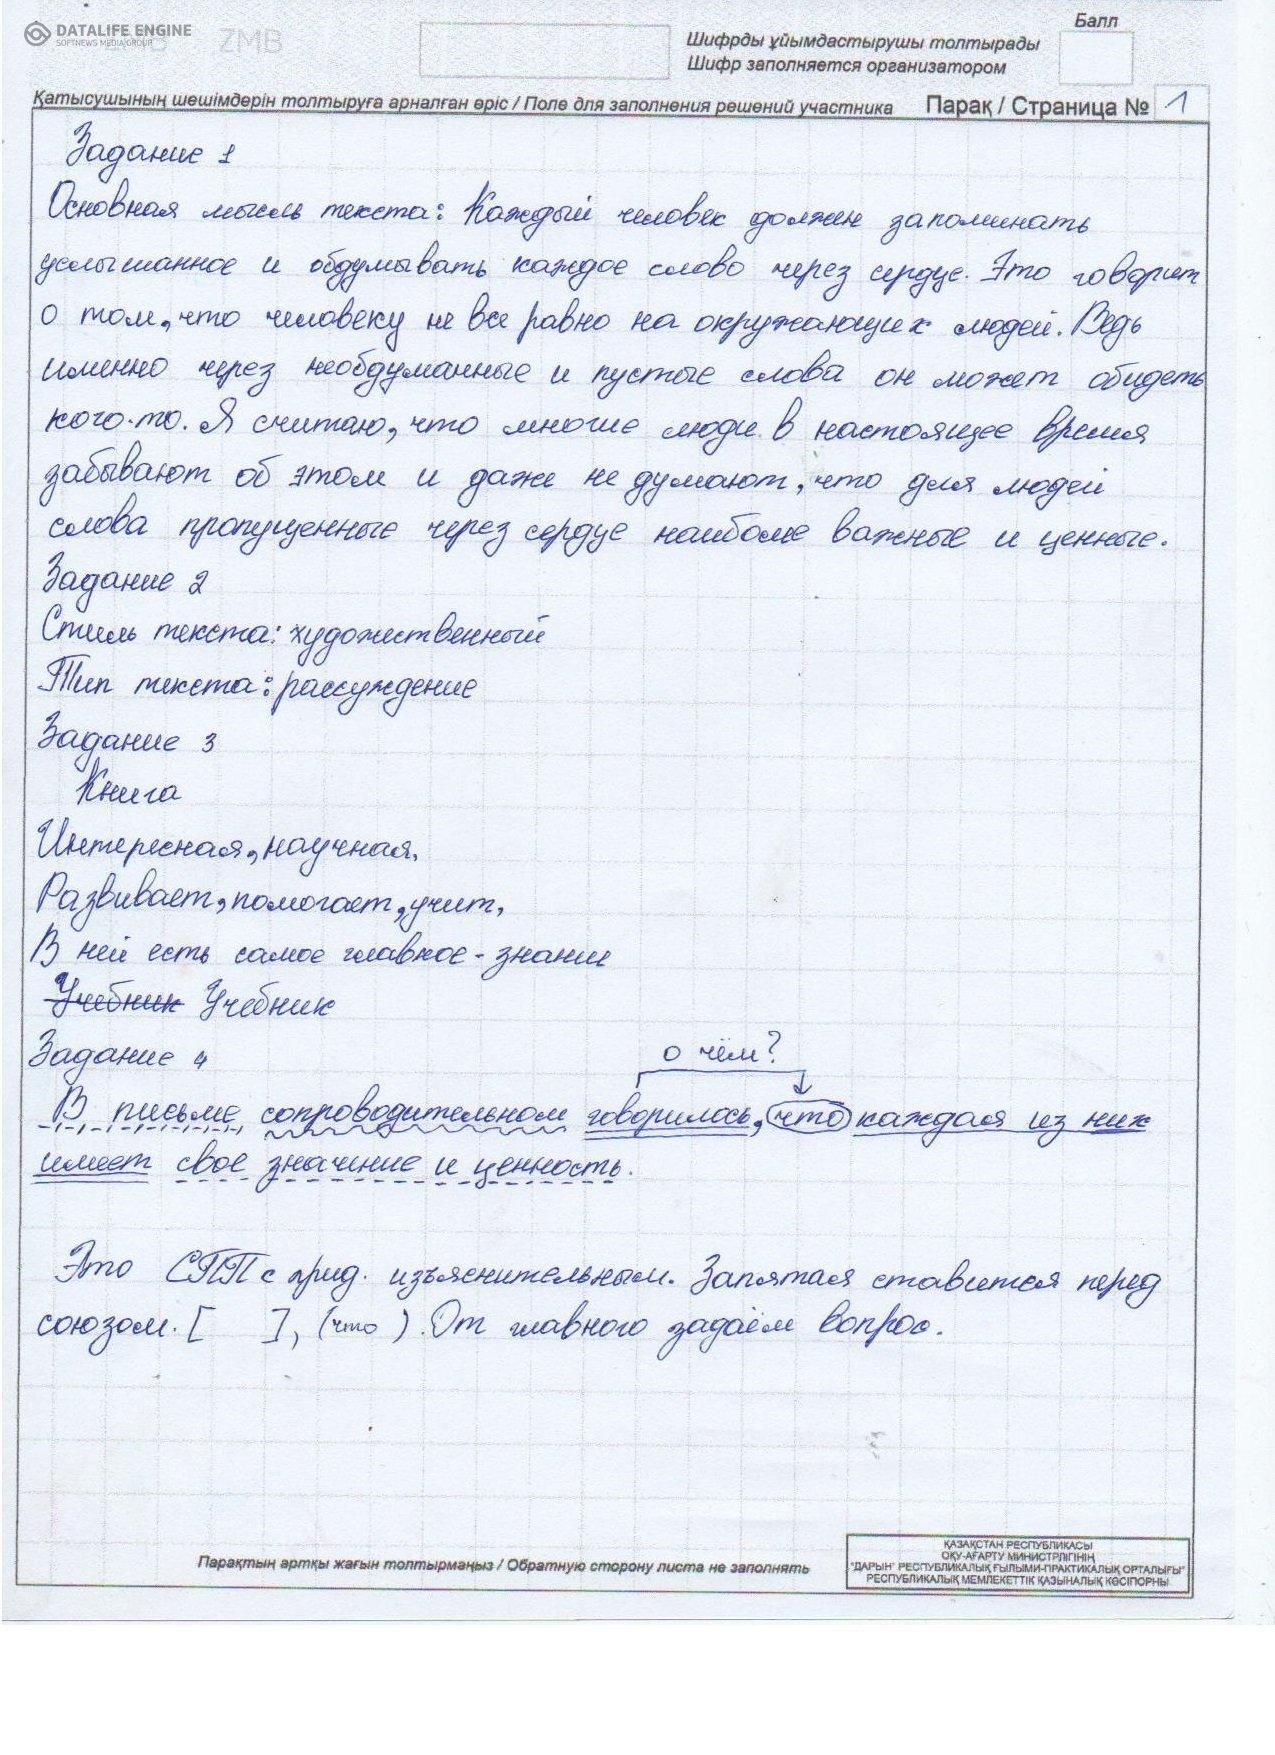 DATALIFE ENGINE
SOFTNEWS MEDIA GROUP
ZMB
Балл
Шифрды ұйымдастырушы толтырады
Шифр заполняется организатором
Қатысушының шешімдерін толтыруға арналған өріс / Поле для заполнения решений участника Парақ / Страница № 1
Задание 1
Основная мысль текста: Каждый человек должен запоминать
услышанное и обдумывать каждое слово через сердце. Это говорит
о том, что человеку не все равно на окружающих людей. Ведь
именно через необдуманные и пустые слова он может обидеть
кого-то. Я считаю, что многие люди в настоящее время
забывают об этом и даже не думают, что для людей
слова пропущенные через сердце наиболе важные и ценные.
Задание 2
Стиль текста: художественный
Тип текста: рассуждение
Задание 3
Книга
Интересная, научная.
Развивает, помогает, учит,
В ней есть самое главное - знание
Учебник Учебник
Задание 4
о чём?
В письме сопроводительном говорилось, что каждая из них
имеет свое значение и ценность.
Это СПП с прид. изъяснительным. Запятая ставится перед
союзом. [ ], (что ). От главного задаём вопрос.
Парақтың артқы жағын толтырмаңыз / Обратную сторону листа не заполнять
ҚАЗАҚСТАН РЕСПУБЛИКАСЫ
ОҚУ-АҒАРТУ МИНИСТРЛІГІНІҢ
"ДАРЫН" РЕСПУБЛИКАЛЫҚ ҒЫЛЫМИ-ПРАКТИКАЛЫҚ ОРТАЛЫҒЫ"
РЕСПУБЛИКАЛЫҚ МЕМЛЕКЕТТІК ҚАЗЫНАЛЫҚ КӘСІПОРНЫ